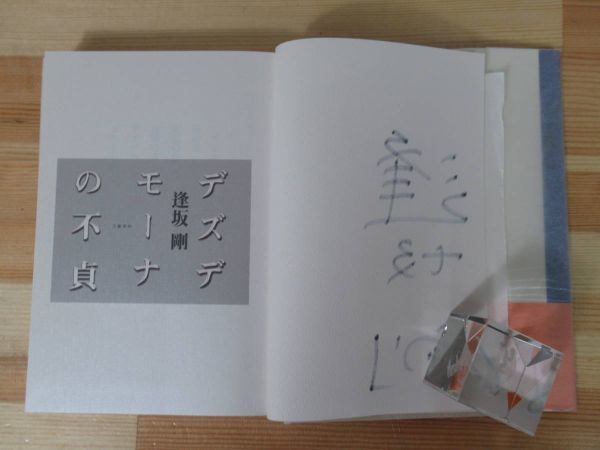 デズデ
モーナ
の不貞
逢坂 剛
逢坂
剛